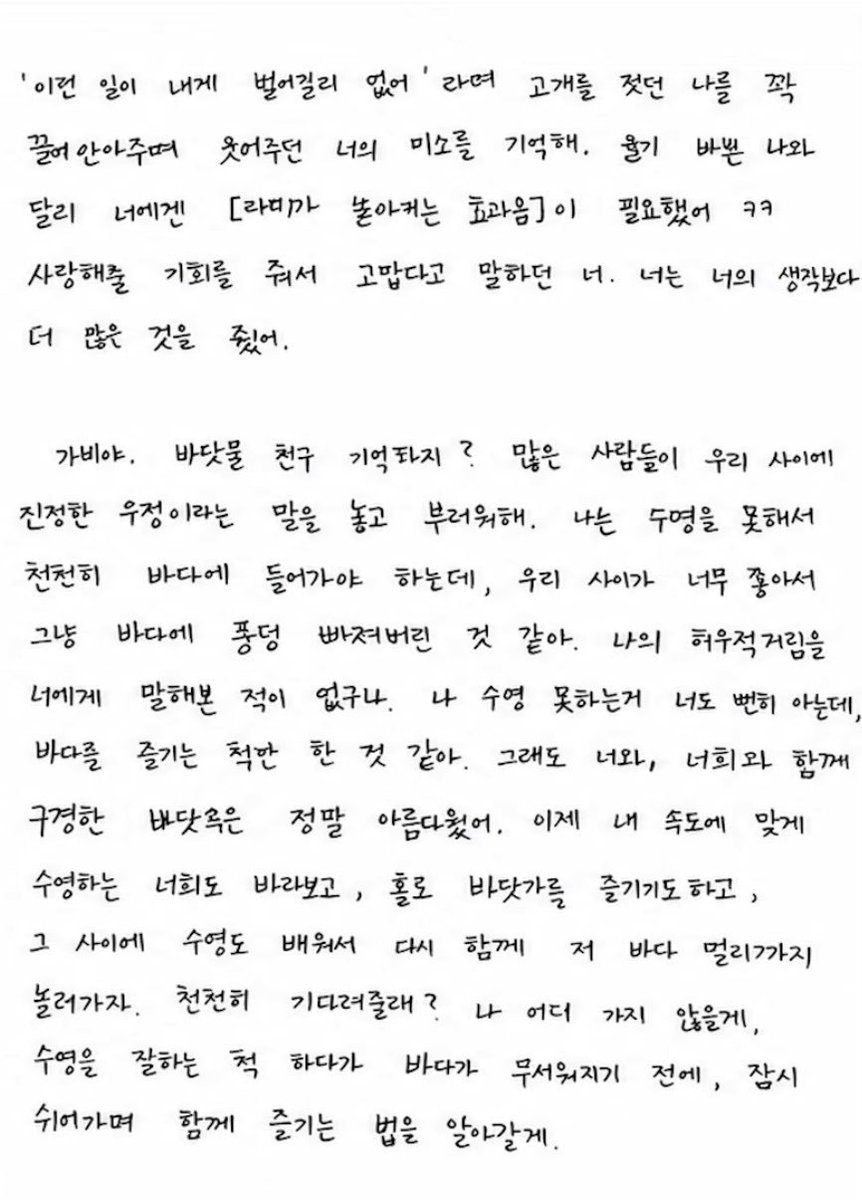 '이런 일이 내게 벌어길리 없어' 라며 고개를 젓던 나를 꽉
끌어안아주며 웃어주던 너의 미소를 기억해. 울기 바쁜 나와
달리 너에겐 [라미가 쏟아커는 효과음]이 필요했어 ㅋㅋ
사랑해줄 기회를 줘서 고맙다고 말하던 너. 너는 너의 생각보다
더 많은 것을 줬어.
가비야. 바닷물 친구 기억하지? 많은 사람들이 우리 사이에
진정한 우정이라는 말을 놓고 부러워해. 나는 수영을 못해서
천천히 바다에 들어가야 하는데, 우리 사이가 너무 좋아서
그냥 바다에 풍덩 빠져버린 것 같아. 나의 허우적거림을
너에게 말해본 적이 없구나. 나 수영 못하는거 너도 뻔히 아는데,
바다를 즐기는 척만 한 것 같아. 그래도 너와, 너희와 함께
구경한 바닷속은 정말 아름다웠어. 이제 내 속도에 맞게
수영하는 너희도 바라보고, 홀로 바닷가를 즐기기도하고,
그 사이에 수영도 배워서 다시 함께 저 바다 멀리까지
놀러가자. 천천히 기다려줄래? 나 어디 가지 않을게,
수영을 잘하는 척 하다가 바다가 무서워지기 전에, 잠시
쉬어가며 함께 즐기는 법을 알아갈게.